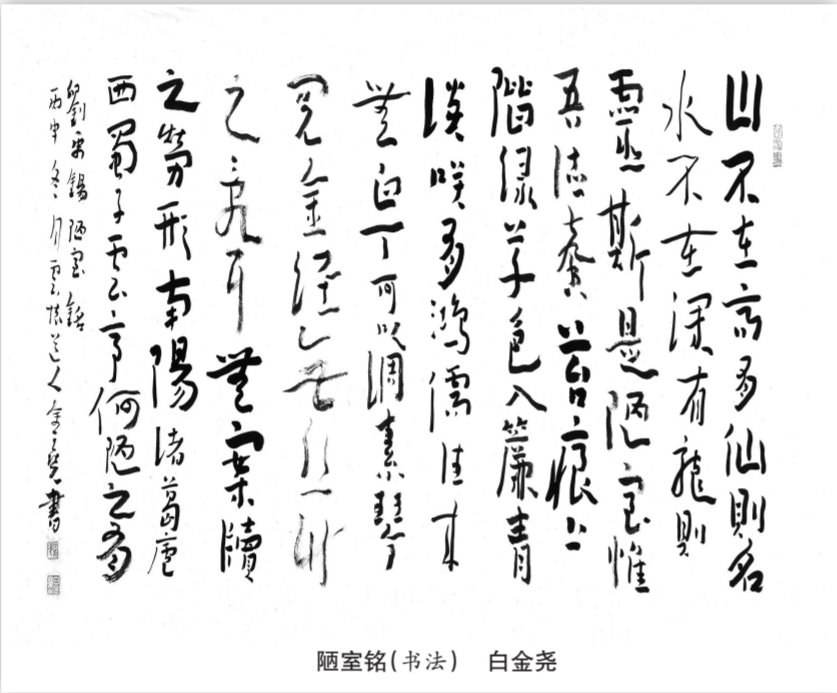 山不在高有仙則名
水不在深有龍則
靈斯是陋室惟
吾德馨苔痕上
階綠草色入簾青
談笑有鴻儒往來
無白丁可以調素琴
閱金經無絲竹
之亂耳無案牘
之勞形南陽諸葛廬
西蜀子雲亭何陋之有
劉禹錫陋室銘
丙申冬月雲道人金堯書
陋室铭(书法) 白金尧